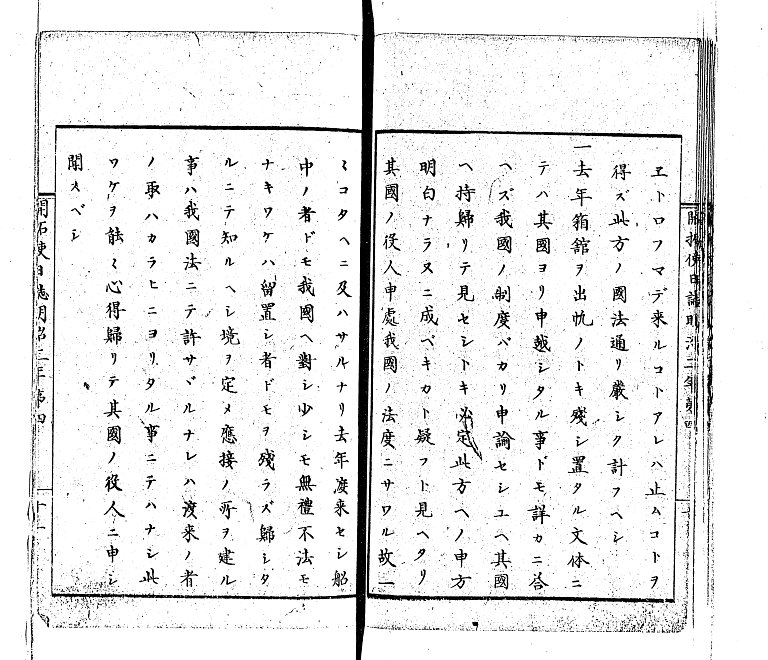 ヱトロフマデ来ルコトアレハ止ムコトヲ
得ズ此方ノ國法通リ嚴シク計フヘシ
一去年箱舘ヲ出帆ノトキ殘シ置タル文体ニ
テハ其國ヨリ申越シタル事ドモ詳カニ荅
ヘズ我國ノ制度バカリ申論セシユヘ其國
ヘ持歸リテ見セシトキ必定此方ヘノ申方
明白ナラヌニ成ベキカト疑フト見ヘタリ
其國ノ役人申處我國ノ法度ニサワル故一
ミコタヘニ及ハサルナリ去年度来セシ船
中ノ者ドモ我國ヘ對シ少シモ無禮不法モ
ナキワケハ留置シ者ドモヲ殘ラズ歸シタ
ルニテ知ルヘシ境ヲ定メ應接ノ所ヲ建ル
事ハ我國法ニテ許サヾルナレハ渡来ノ者
ノ取ハカラヒニヨリタル事ニテハナシ此
ワケヲ能ミ心得歸リテ其國ノ役人ニ申シ
聞スベシ
開拓使日誌明治二年第四